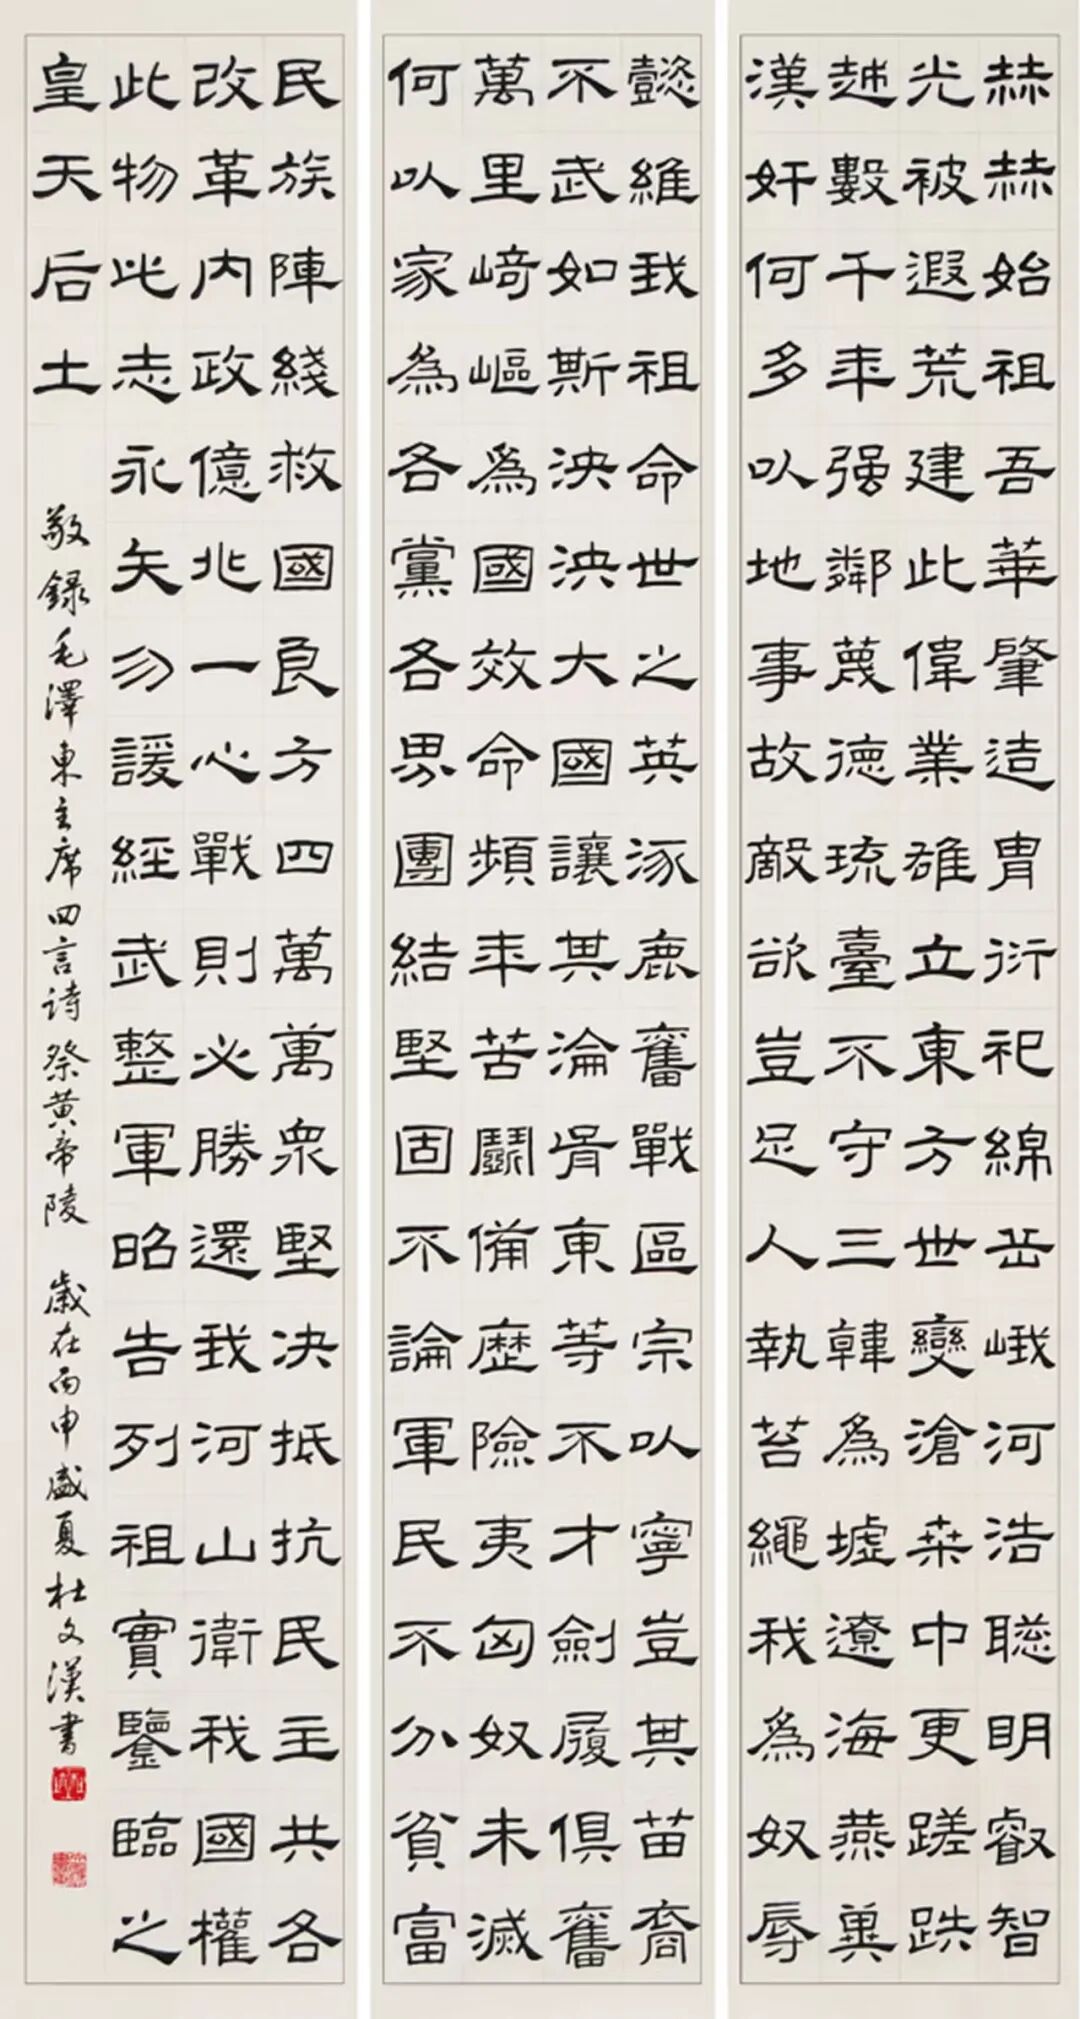 赫赫始祖吾華肇造冑衍祀綿岳峨河浩聰明叡智
光被遐荒建此偉業雄立東方世變滄桑中更蹉跌
越數千年强鄰蔑德琉臺不守三韓為墟遼海燕冀
漢奸何多以地事故敵欲豈足人執苔繩我為奴辱
懿維我祖命世之英涿鹿奮戰區宗以寧豈其苗裔
不武如斯泱泱大國讓其淪胥東等不才劍履俱奮
萬里崎嶇為國效命頻年苦鬭備歷險夷匈奴未滅
何以家為各黨各界團結堅固不論軍民不分貧富
民族陣綫救國良方四萬萬衆堅决抵抗民主共各
改革内政億兆一心戰則必勝還我河山衛我國權
此物此志永矢勿諼經武整軍昭告列祖實鑒臨之
皇天后土
敬録毛澤東主席四言诗祭黄帝陵 歲在丙申盛夏杜文漢書